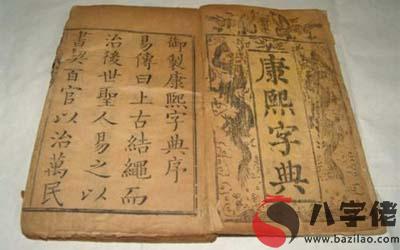 康熙字典
御製康熙字典序
易傳曰上古結繩而
治後世聖人易之以
書契百官以治萬民
八字佬
www.bazilao.com